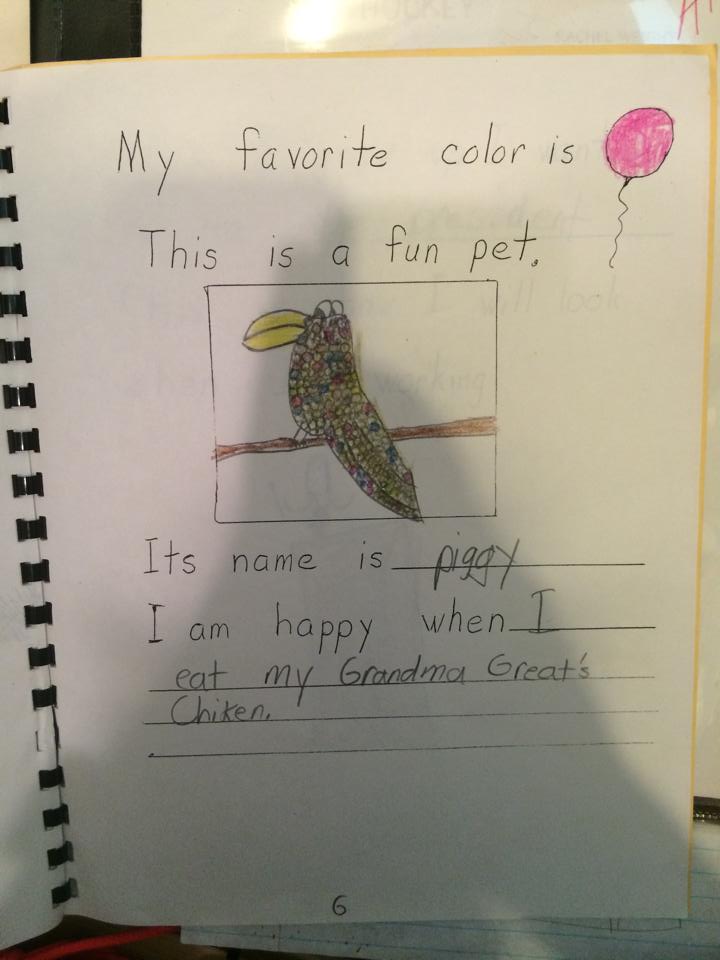 HOCKEY
My favorite color is
This is a fun pet.
Its name is piggy
I am happy when I
eat my Grandma Great's
Chiken.
6